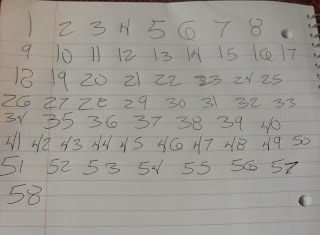 1 2 3 4 5 6 7 8
9 10 11 12 13 14 15 16 17
18 19 20 21 22 23 24 25
26 27 28 29 30 31 32 33
34 35 36 37 38 39 40
41 42 43 44 45 46 47 48 49 50
51 52 53 54 55 56 57
58